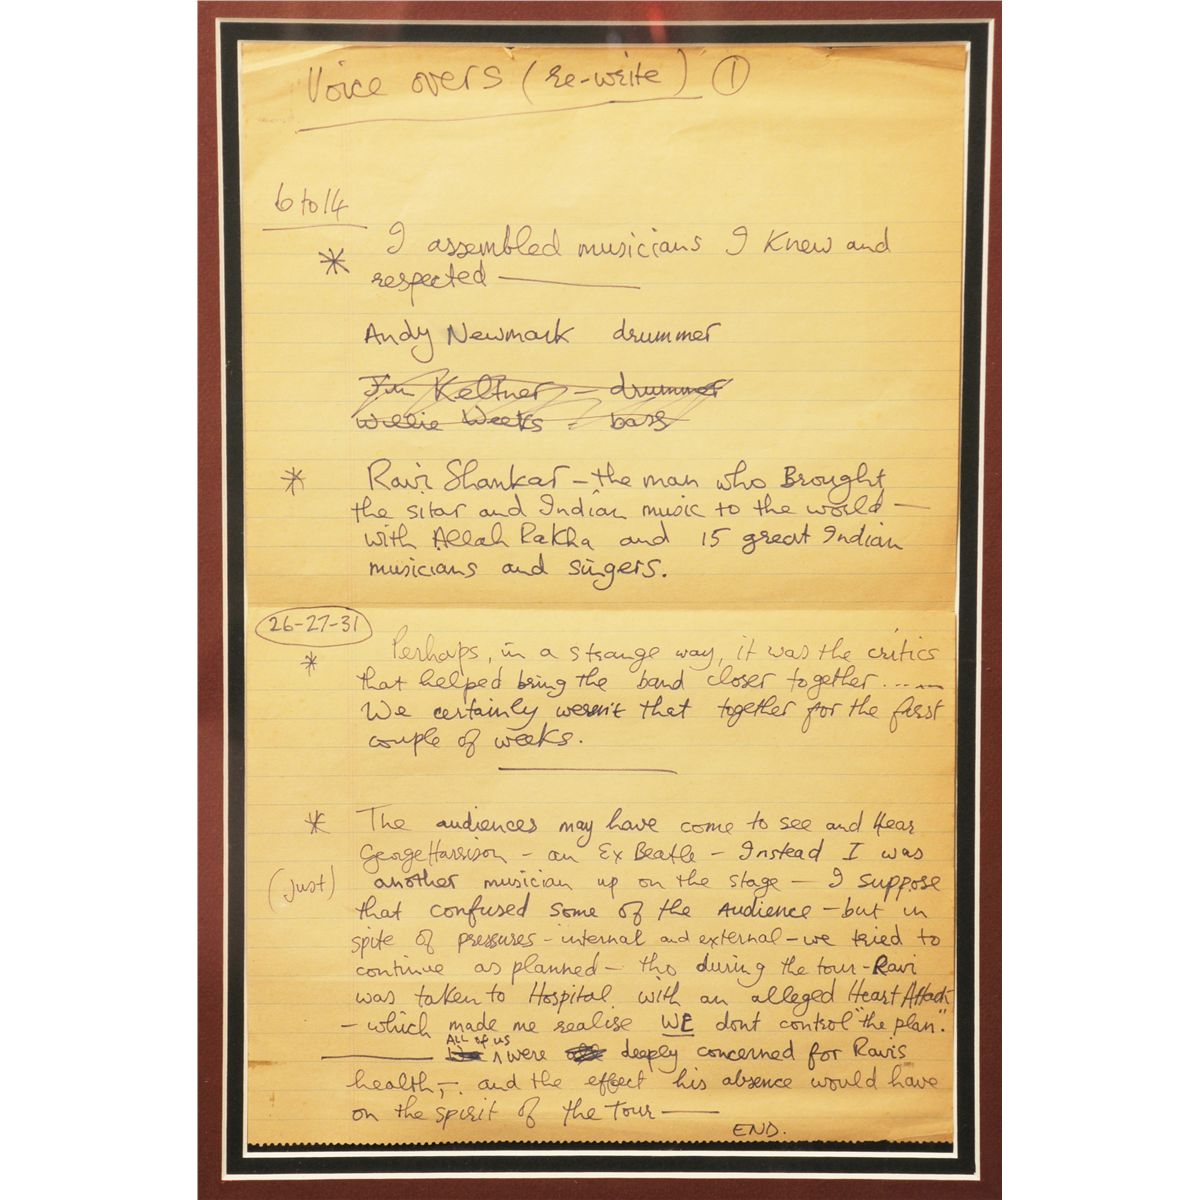 Voice overs (re-write) 1
6 to 14
* I assembled musicians I Knew and
respected —
Andy Newmark drummer
Jim Keltner - drummer
Willie Weeks - bass
* Ravi Shankar - the man who Brought
the sitar and Indian music to the world -
with Allah Rakha and 15 great Indian
musicians and singers.
26-27-31
* Perhaps, in a strange way, it was the critics
that helped bring the band closer together......
We certainly weren't that together for the first
couple of weeks.
* The audiences may have come to see and Hear
George Harrison - an Ex Beatle - Instead I was
(Just) another musician up on the stage - I suppose
that confused some of the Audience - but in
spite of pressures - internal and external - we tried to
continue as planned - tho during the tour - Ravi
was taken to Hospital with an alleged Heart Attack
- which made me realise WE dont control "the plan."
ALL of us
were deeply concerned for Ravis
health, - and the effect his absence would have
on the spirit of the Tour —
END.